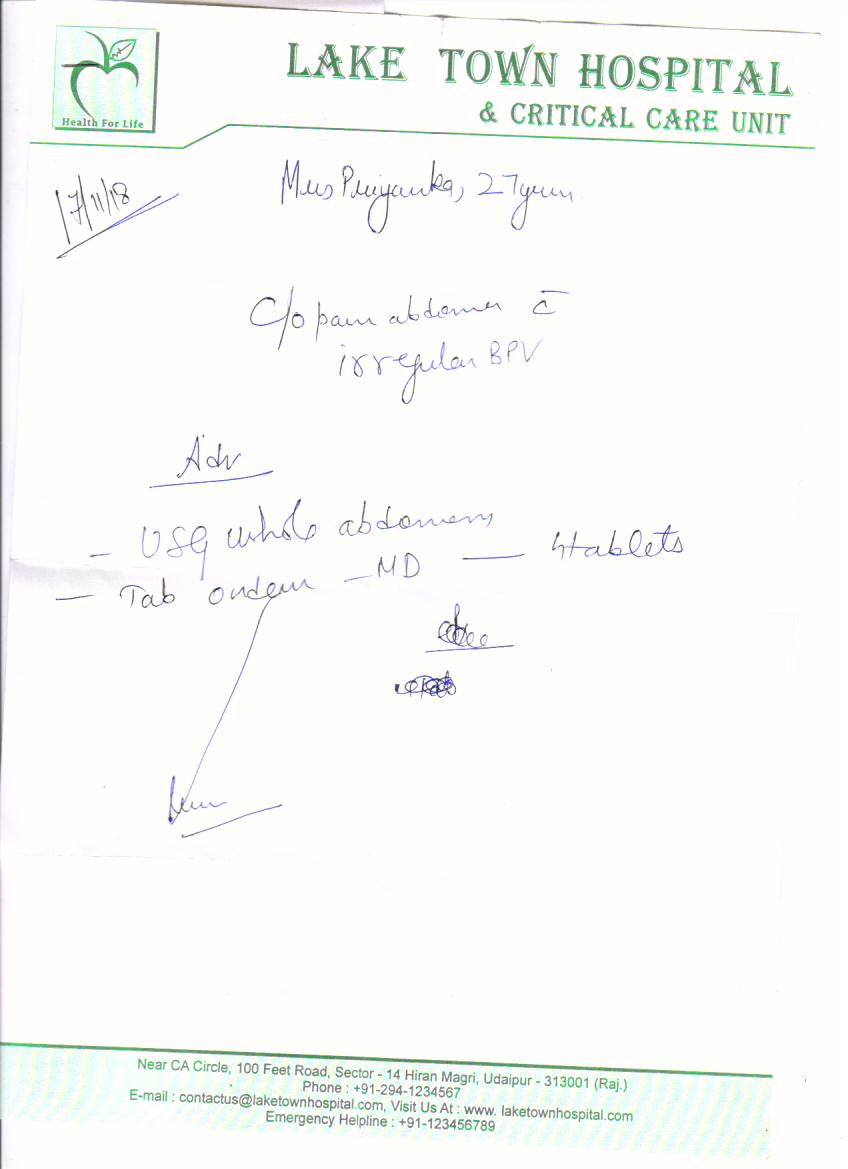 Health For Life
LAKE TOWN HOSPITAL
& CRITICAL CARE UNIT
17/11/18
Mrs Priyanka, 27 years
C/o pain abdomen c̄
irregular BPV
Adv
- USG whole abdomen
- Tab ondem - MD — 4 tablets
Near CA Circle, 100 Feet Road, Sector - 14 Hiran Magri, Udaipur - 313001 (Raj.)
Phone : +91-294-1234567
E-mail : contactus@laketownhospital.com, Visit Us At : www. laketownhospital.com
Emergency Helpline : +91-123456789